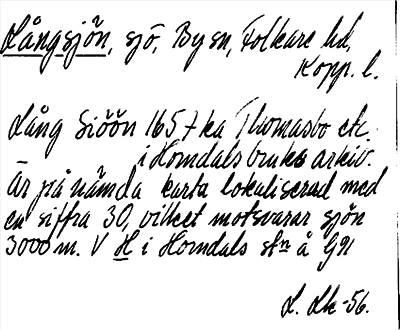 Långsjön, sjö, By sn, Folkare hd,
Kopp. l.
Lång Siöön 1657 ka Thomasbo etc.
i Horndals bruks arkiv.
Är på nämda karta lokaliserad med
en siffra 30, vilket motsvarar sjön
3000 m. V H i Horndals stn å G91
L. Lk -56.